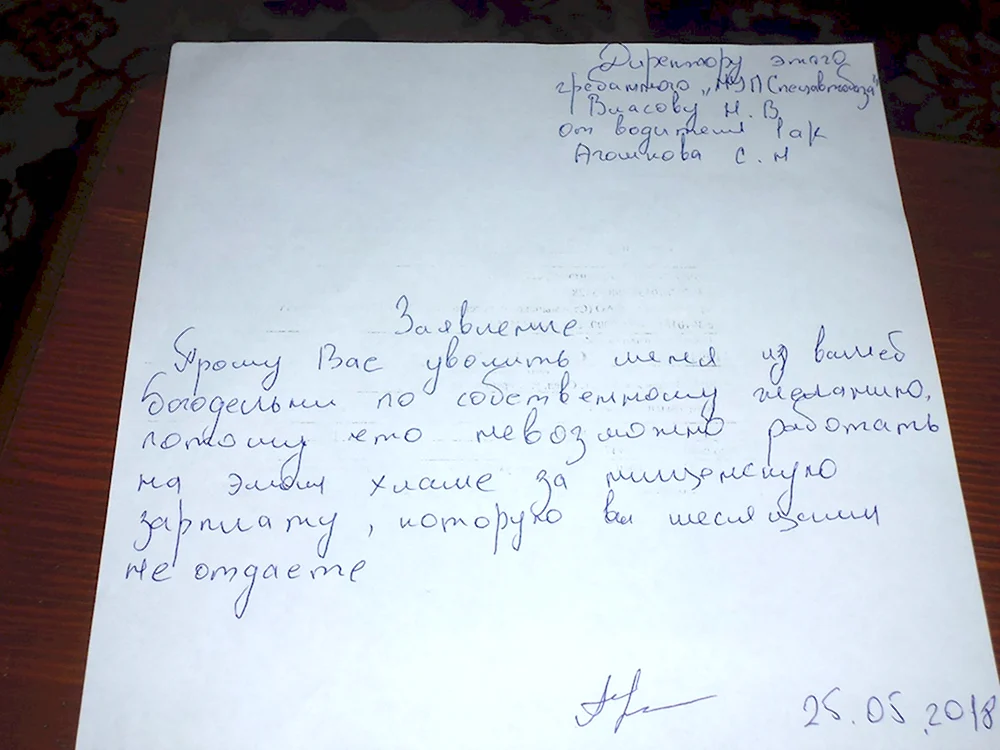 Директору этого
гребанного „МУП Спецавтобаза"
Власову Н. В.
от водителя
Агошкова С. Н
Заявление.
Прошу Вас уволить меня из вашей
богодельни по собственному желанию,
потому что невозможно работать
на этом хламе за нищенскую
зарплату, которую вы месяцами
не отдаете
25.05.2018